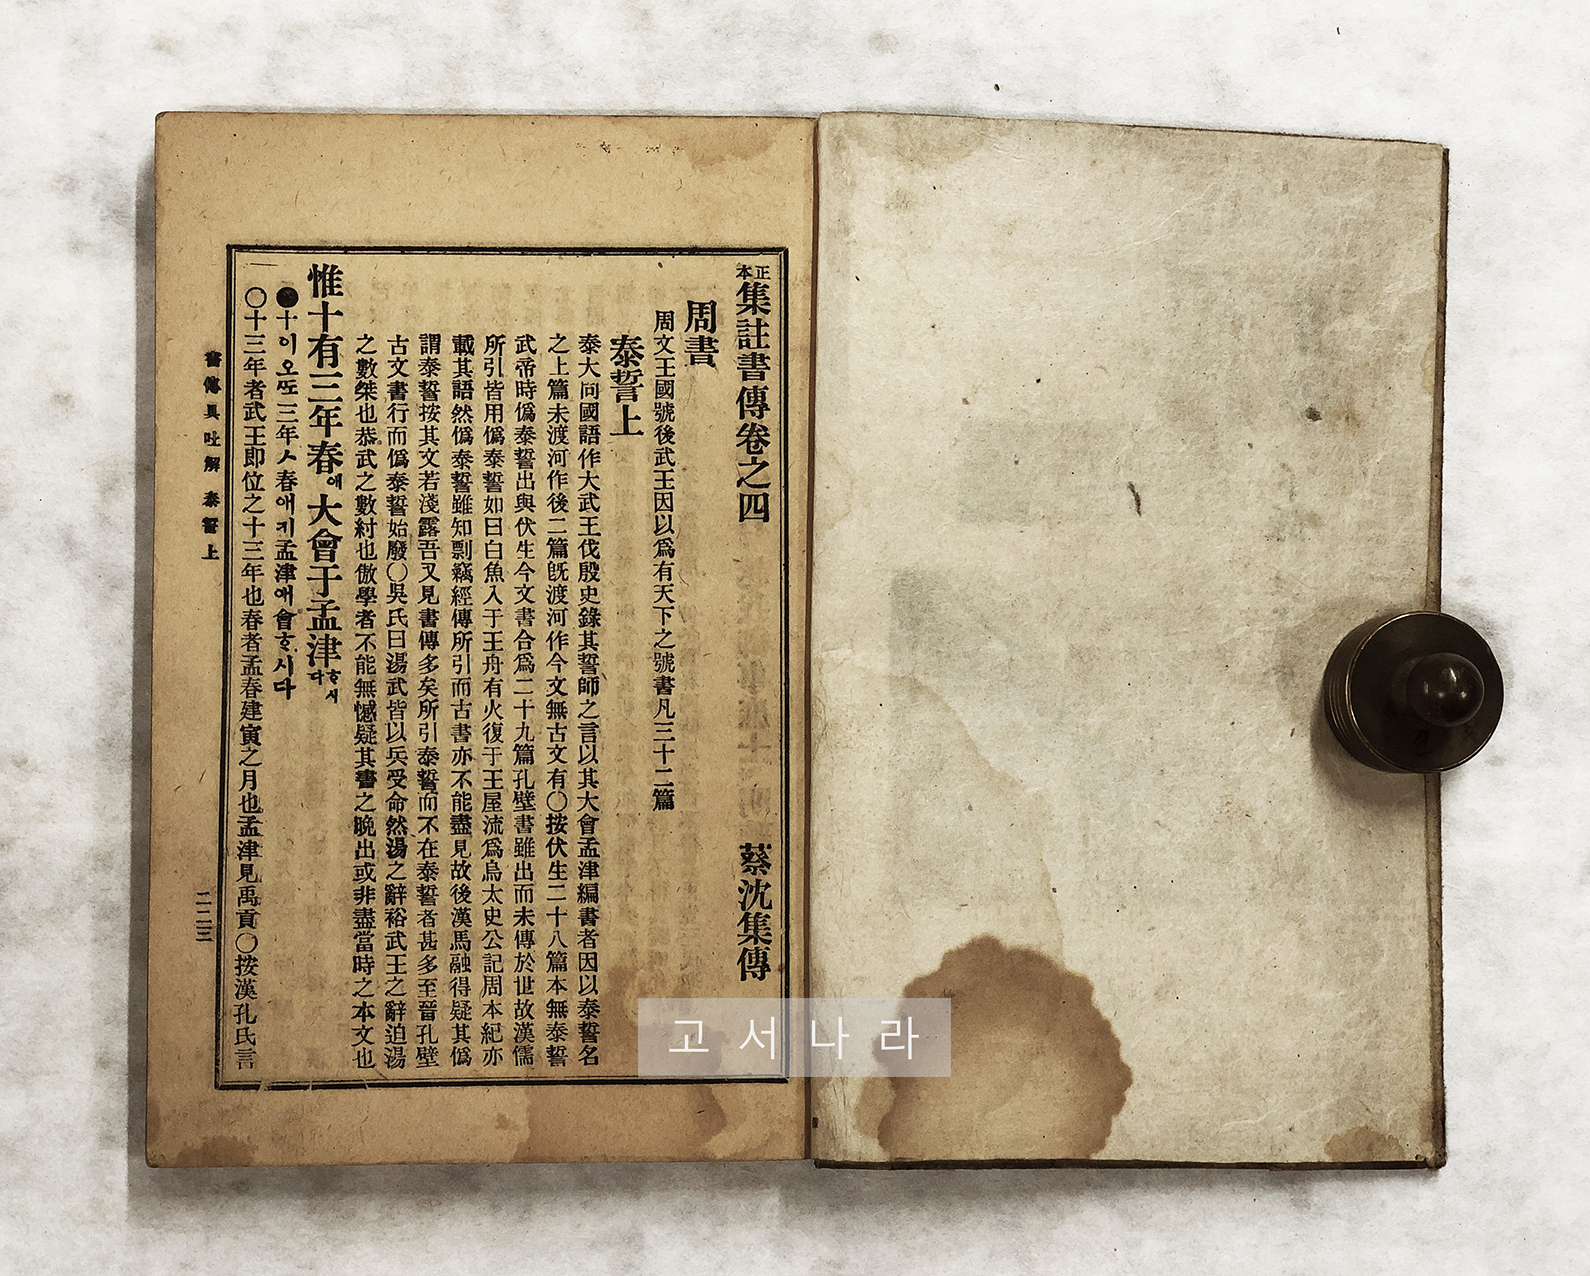 正本集註書傳卷之四 蔡沈集傳
周書
周文王國號後武王因以爲有天下之號書凡三十二篇
泰誓上
泰大同國語作大武王伐殷史錄其誓師之言以其大會孟津編書者因以泰誓名
之上篇未渡河作後二篇旣渡河作今文無古文有○按伏生二十八篇本無泰誓
武帝時僞泰誓出與伏生今文書合爲二十九篇孔壁書雖出而未傳於世故漢儒
所引皆用僞泰誓如曰白魚入于王舟有火復于王屋流爲烏太史公記周本紀亦
載其語然僞泰誓雖知剽竊經傳所引而古書亦不能盡見故後漢馬融得疑其僞
謂泰誓按其文若淺露吾又見書傳多矣所引泰誓而不在泰誓者甚多至晉孔壁
古文書行而僞泰誓始廢○吳氏曰湯武皆以兵受命然湯之辭裕武王之辭迫湯
之數桀也恭武之數紂也傲學者不能無憾疑其書之晩出或非盡當時之本文也
惟十有三年春애大會于孟津ᄒᆞ시다
●十이오ᄯᅩ三年ㅅ春애키孟津애會ᄒᆞ시다
○十三年者武王卽位之十三年也春者孟春建寅之月也孟津見禹貢○按漢孔氏言
書傳具吐解 泰誓上
二二三
고서나라